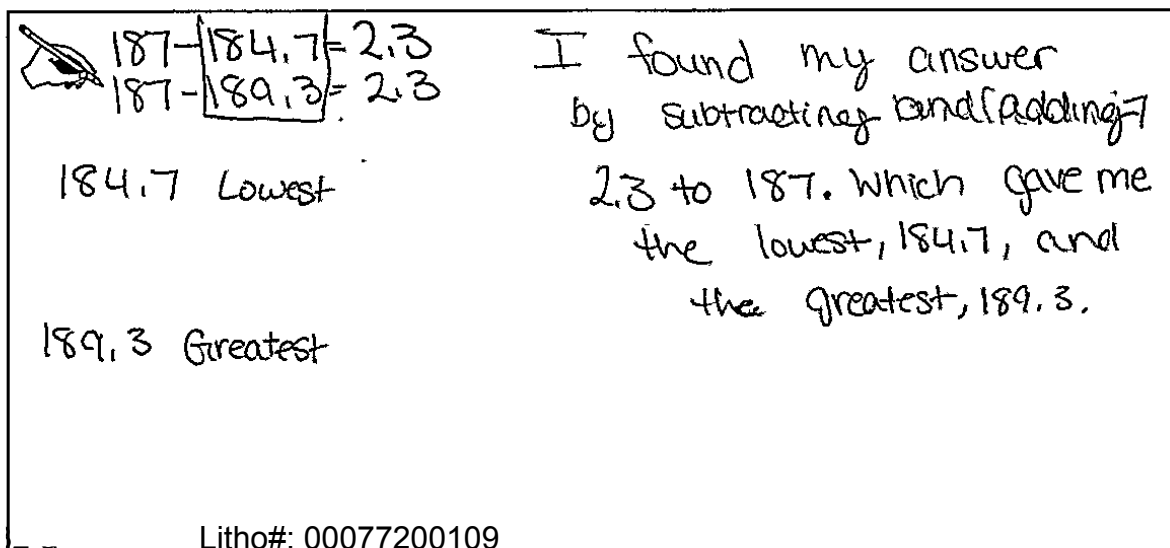 187-184.7=2.3
187-189.3=2.3
184.7 Lowest
189.3 Greatest
I found my answer
by subtracting and (adding-7
2.3 to 187. Which gave me
the lowest, 184.7, and
the greatest, 189.3.
Litho#: 00077200109